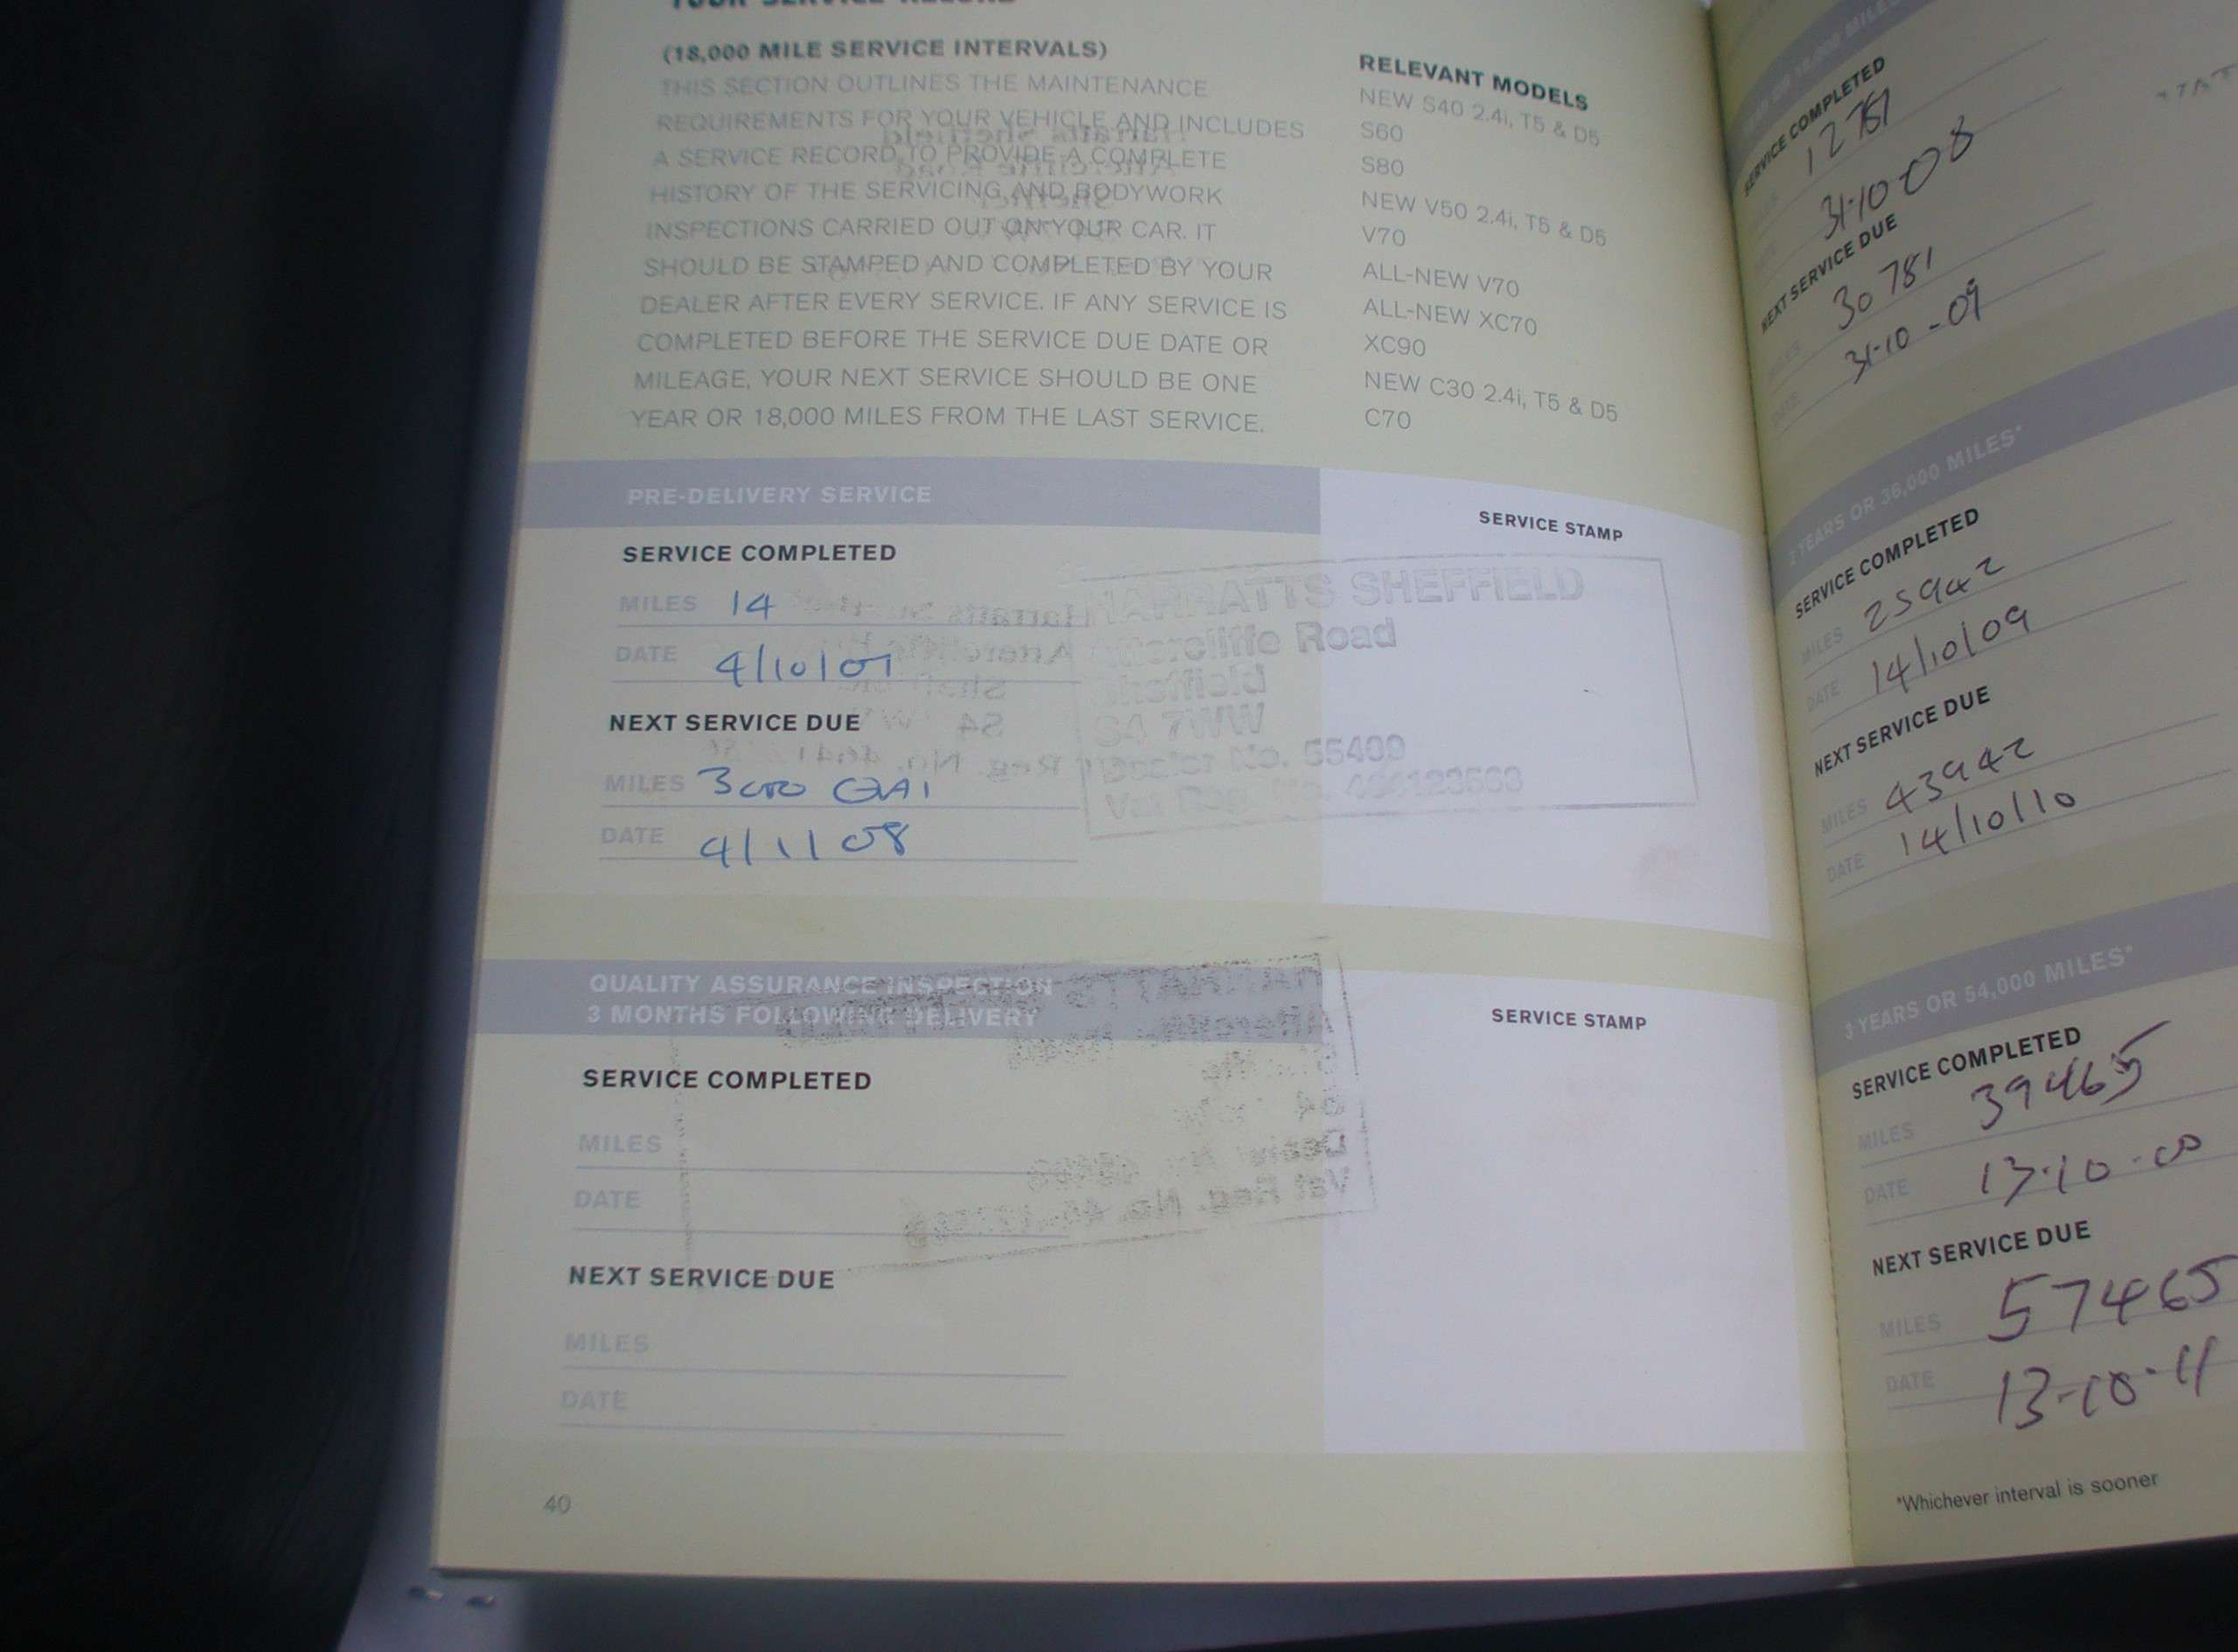 YOUR SERVICE RECORD
(18,000 MILE SERVICE INTERVALS)
THIS SECTION OUTLINES THE MAINTENANCE
REQUIREMENTS FOR YOUR VEHICLE AND INCLUDES
A SERVICE RECORD TO PROVIDE A COMPLETE
HISTORY OF THE SERVICING AND BODYWORK
INSPECTIONS CARRIED OUT ON YOUR CAR. IT
SHOULD BE STAMPED AND COMPLETED BY YOUR
DEALER AFTER EVERY SERVICE. IF ANY SERVICE IS
COMPLETED BEFORE THE SERVICE DUE DATE OR
MILEAGE, YOUR NEXT SERVICE SHOULD BE ONE
YEAR OR 18,000 MILES FROM THE LAST SERVICE.
RELEVANT MODELS
NEW S40 2.4i, T5 & D5
S60
S80
NEW V50 2.4i, T5 & D5
V70
ALL-NEW V70
ALL-NEW XC70
XC90
NEW C30 2.4i, T5 & D5
C70
PRE-DELIVERY SERVICE
SERVICE STAMP
SERVICE COMPLETED
MILES 14
DATE 4/10/07
NEXT SERVICE DUE
MILES 3000 QAI
DATE 4/11/08
HARRATTS SHEFFIELD
Attercliffe Road
Sheffield
S4 7WW
Dealer No. 55409
Vat Reg. No.
QUALITY ASSURANCE INSPECTION
3 MONTHS FOLLOWING DELIVERY
SERVICE STAMP
SERVICE COMPLETED
MILES
DATE
NEXT SERVICE DUE
MILES
DATE
40
SERVICE COMPLETED
12781
31·10 08
NEXT SERVICE DUE
MILES 30781
DATE 31-10-09
2 YEARS OR 36,000 MILES*
SERVICE COMPLETED
MILES 25942
DATE 14/10/09
NEXT SERVICE DUE
MILES 43942
DATE 14/10/10
3 YEARS OR 54,000 MILES*
SERVICE COMPLETED
MILES 39465
DATE
NEXT SERVICE DUE
MILES 57465
DATE 13-10-11
*Whichever interval is sooner